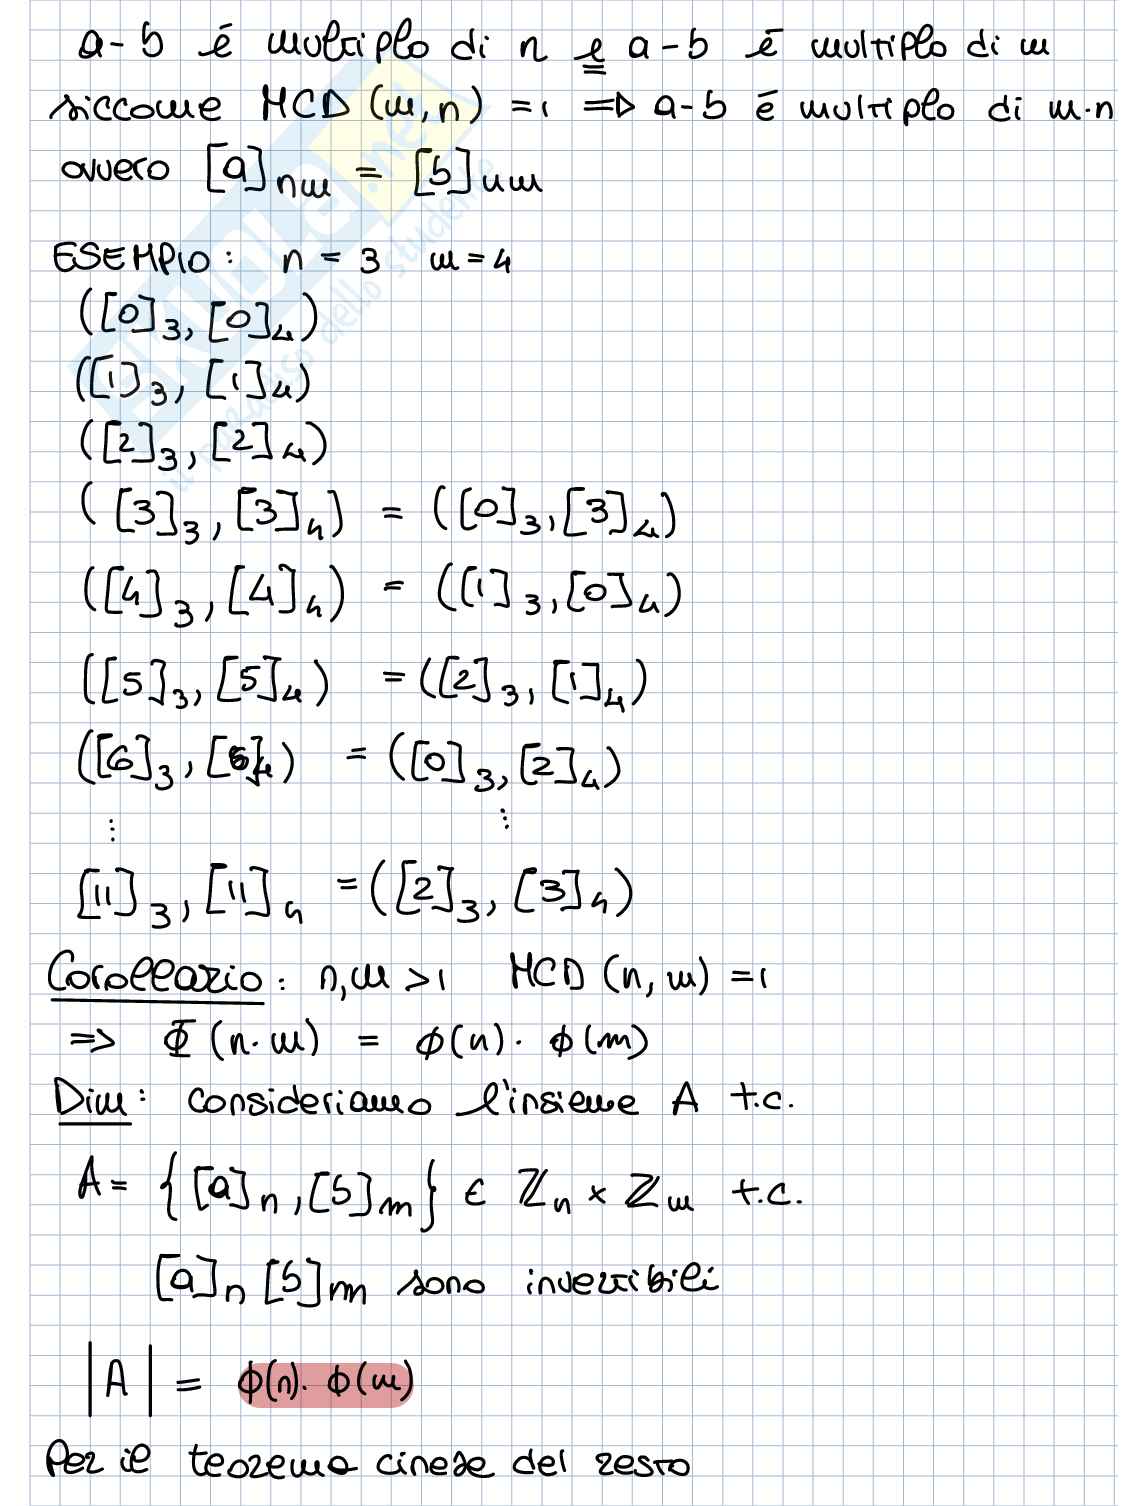 a-b é multiplo di n e a-b é multiplo di m
siccome MCD(m,n) = 1 => a-b é multiplo di m·n
ovvero [a]nm = [b]nm
ESEMPIO: n = 3 m = 4
([0]3, [0]4)
([1]3, [1]4)
([2]3, [2]4)
([3]3, [3]4) = ([0]3, [3]4)
([4]3, [4]4) = ([1]3, [0]4)
([5]3, [5]4) = ([2]3, [1]4)
([6]3, [6]4) = ([0]3, [2]4)
⋮ ⋮
[11]3, [11]4 = ([2]3, [3]4)
Corollario: n,m > 1 MCD(n,m) = 1
=> Φ(n·m) = ϕ(n)· ϕ(m)
Dim: consideriamo l'insieme A t.c.
A = {[a]n, [b]m} ∈ ℤn × ℤm t.c.
[a]n [b]m sono invertibili
|A| = ϕ(n)· ϕ(m)
Per il teorema cinese del resto